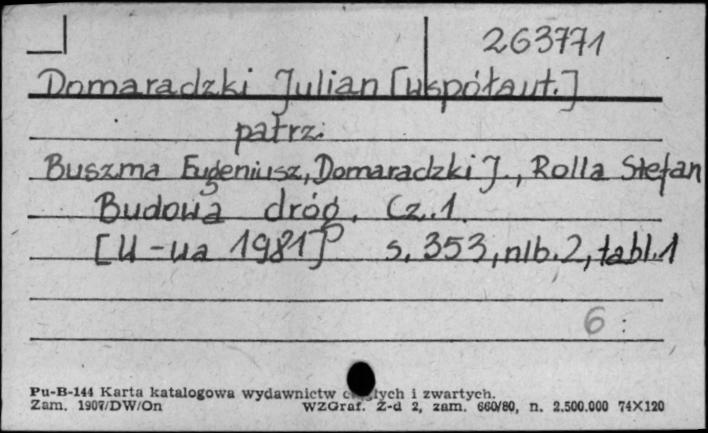 263771
Domaradzki Julian [współaut.]
patrz:
Buszma Eugeniusz, Domaradzki J., Rolla Stefan
Budowa dróg. Cz. 1.
[W-wa 1981] s. 353, nlb. 2, tabl. 1
6
Pu-B-144 Karta katalogowa wydawnictw ciągłych i zwartych.
Zam. 1907/DW/On WZGraf. Z-d 2, zam. 660/80, n. 2.500.000 74X120